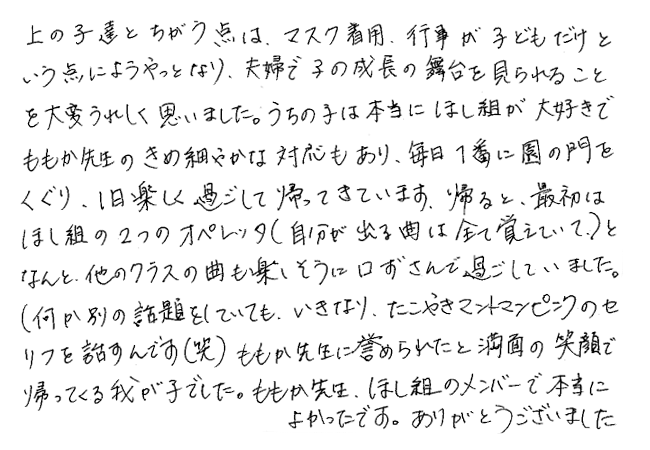 上の子達とちがう点は、マスク着用、行事が子どもだけと
いう点にようやっとなり、夫婦で子の成長の舞台を見られること
を大変うれしく思いました。うちの子は本当にほし組が大好きで
ももか先生のきめ細やかな対応もあり、毎日1番に園の門を
くぐり、1日楽しく過ごして帰ってきています。帰ると、最初は
ほし組の2つのオペレッタ(自分が出る曲は全て覚えていて。)と
なんと、他のクラスの曲も楽しそうに口ずさんで過ごしていました。
(何か別の話題をしていても、いきなり、たこやきマントマンピンクのセ
リフを話すんです(笑)ももか先生に誉められたと満面の笑顔で
帰ってくる我が子でした。ももか先生、ほし組のメンバーで本当に
よかったです。ありがとうございました